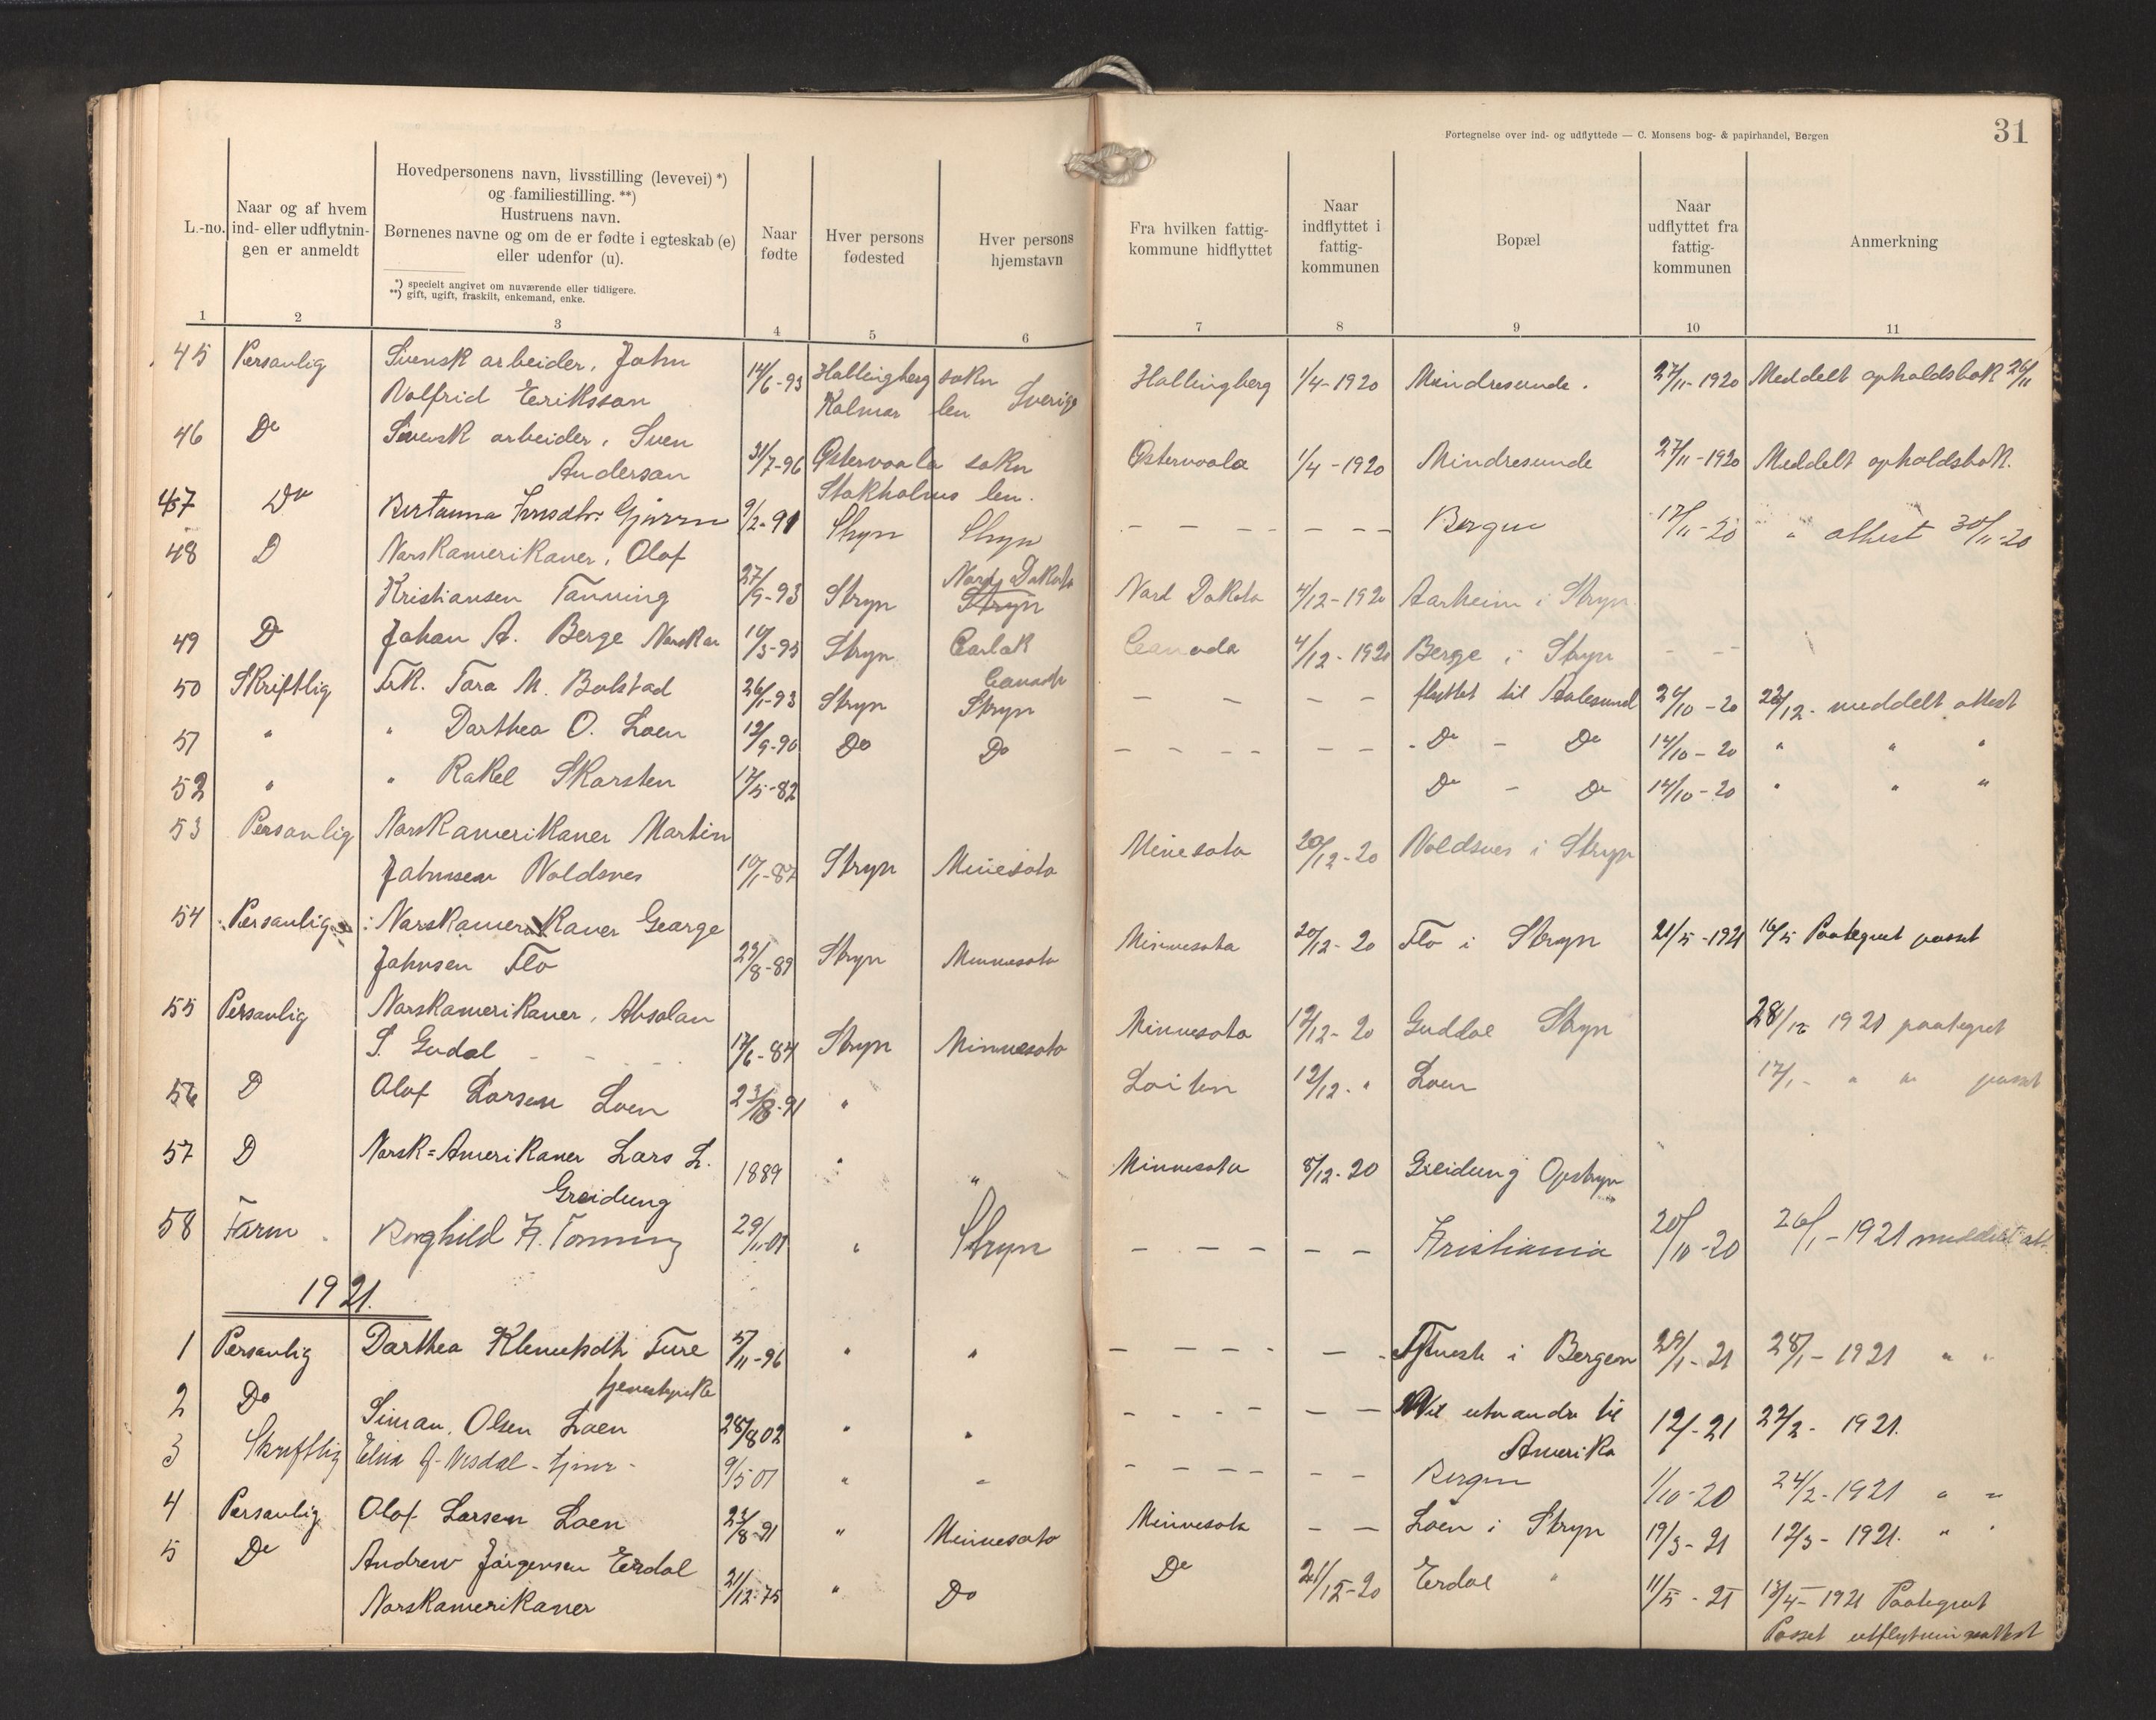 Fortegnelse over ind- og udflyttede — C. Monsens bog- & papirhandel, Bergen 31
L.-no. Naar og af hvem ind- eller udflytnin-gen er anmeldt
Hovedpersonens navn, livsstilling (levevei) *)
og familiestilling. **)
Hustruens navn.
Børnenes navne og om de er fødte i egteskab (e)
eller udenfor (u).
*) specielt angivet om nuværende eller tidligere.
**) gift, ugift, fraskilt, enkemand, enke.
Naar fødte
Hver persons fødested
Hver persons hjemstavn
Fra hvilken fattig-kommune hidflyttet
Naar indflyttet i fattig-kommunen
Bopæl
Naar udflyttet fra fattig-kommunen
Anmerkning
1 2 3 4 5 6 7 8 9 10 11
45 Personlig Svensk arbeider, John 14/6-93 Hallingberg sokn Hallingberg 1/4-1920 Mindresunde. 27/11-1920 Meddelt opholdsbok 26/11
Volfrid Eriksson Kalmar len Sverige
46 Do Svensk arbeider, Sven
Anderson 31/7-96 Østervaala sokn Østervaala 1/4-1920 Mindresunde 27/11-1920 Meddelt opholdsbok.
Stokholms len.
47 Do Gjørven 9/2-91 Stryn Stryn - - - - - - - Bergen 17/11-20 " attest 30/11-20
48 D Norskamerikaner, Olof Nord Dakota
Kristiansen Tonning 27/9-93 Stryn Stryn Nord Dakota 4/12-1920 Aarheim i Stryn
49 D Johan A. Berge Norskam 10/3-95 Stryn Canada 4/12-1920 Berge i Stryn - - -
Canada
50 Skriftlig Frk. Tora M. Bolstad 26/1-93 Stryn Stryn - - - - flyttet til Aalesund 20/10-20 22/12- meddelt attest
51 " " Dorthea O. Loen 12/9-90 Do Do - - - - - - - Do - Do 14/10-20 " " "
52 " " Rakel Skarsten 17/5-82 Do - Do 14/10-20 " " "
53 Personlig Norskamerikaner Martin
Johnsen Voldsnes 10/1-87 Stryn Minesota Minesota 20/12-20 Voldsnes i Stryn
54 Personlig Norskamerikaner George
Johnsen Flo 23/8-89 Stryn Minnesota Minnesota 20/12-20 Flo i Stryn 21/5-1921 16/5 Paategnet passet
55 Personlig Norskamerikaner, Absolon
S. Gudal - - - 17/6-84 Stryn Minnesota Minnesota 12/12-20 Guddal Stryn 28/12 1921 paategnet
56 D Olof Larsen Loen 23/8-91 " 12/12- " Loen 17/1- " " passet
57 D Norsk=Amerikaner Lars L.
Greidung 1889 " " Minnesota 8/12-20 Greidung Opstryn
58 Form Borghild K. Tonning 29/11-01 " Stryn - - - - - - Kristiania 20/10-20 26/1-1921 meddelt att.
1921.
1 Personlig Dorthea Klemetsdtr Ture 5/11-96 " " - - - - - i Bergen 29/1-21 28/1-1921 " "
tjenestepike
2 Do Simon Olsen Loen 28/8 02 " " - - - - - - Vil utvandre til 12/-21 22/2- 1921.
Amerika
3 Skriftlig Visdal - tjener - 9/5 01 " " - - - - - - Bergen 1/10-20 24/2-1921 " "
4 Personlig Olof Larsen Loen 23/8-91 " Minnesota Minnesota - - Loen i Stryn 19/3-21 12/3-1921. " "
5 Do Andrew Jørgensen Erdal
Norskamerikaner 21/12-75 " Do Do 21/12-20 Erdal " 11/5-21 13/4-1921 Paategnet
Passet utflytningsattest